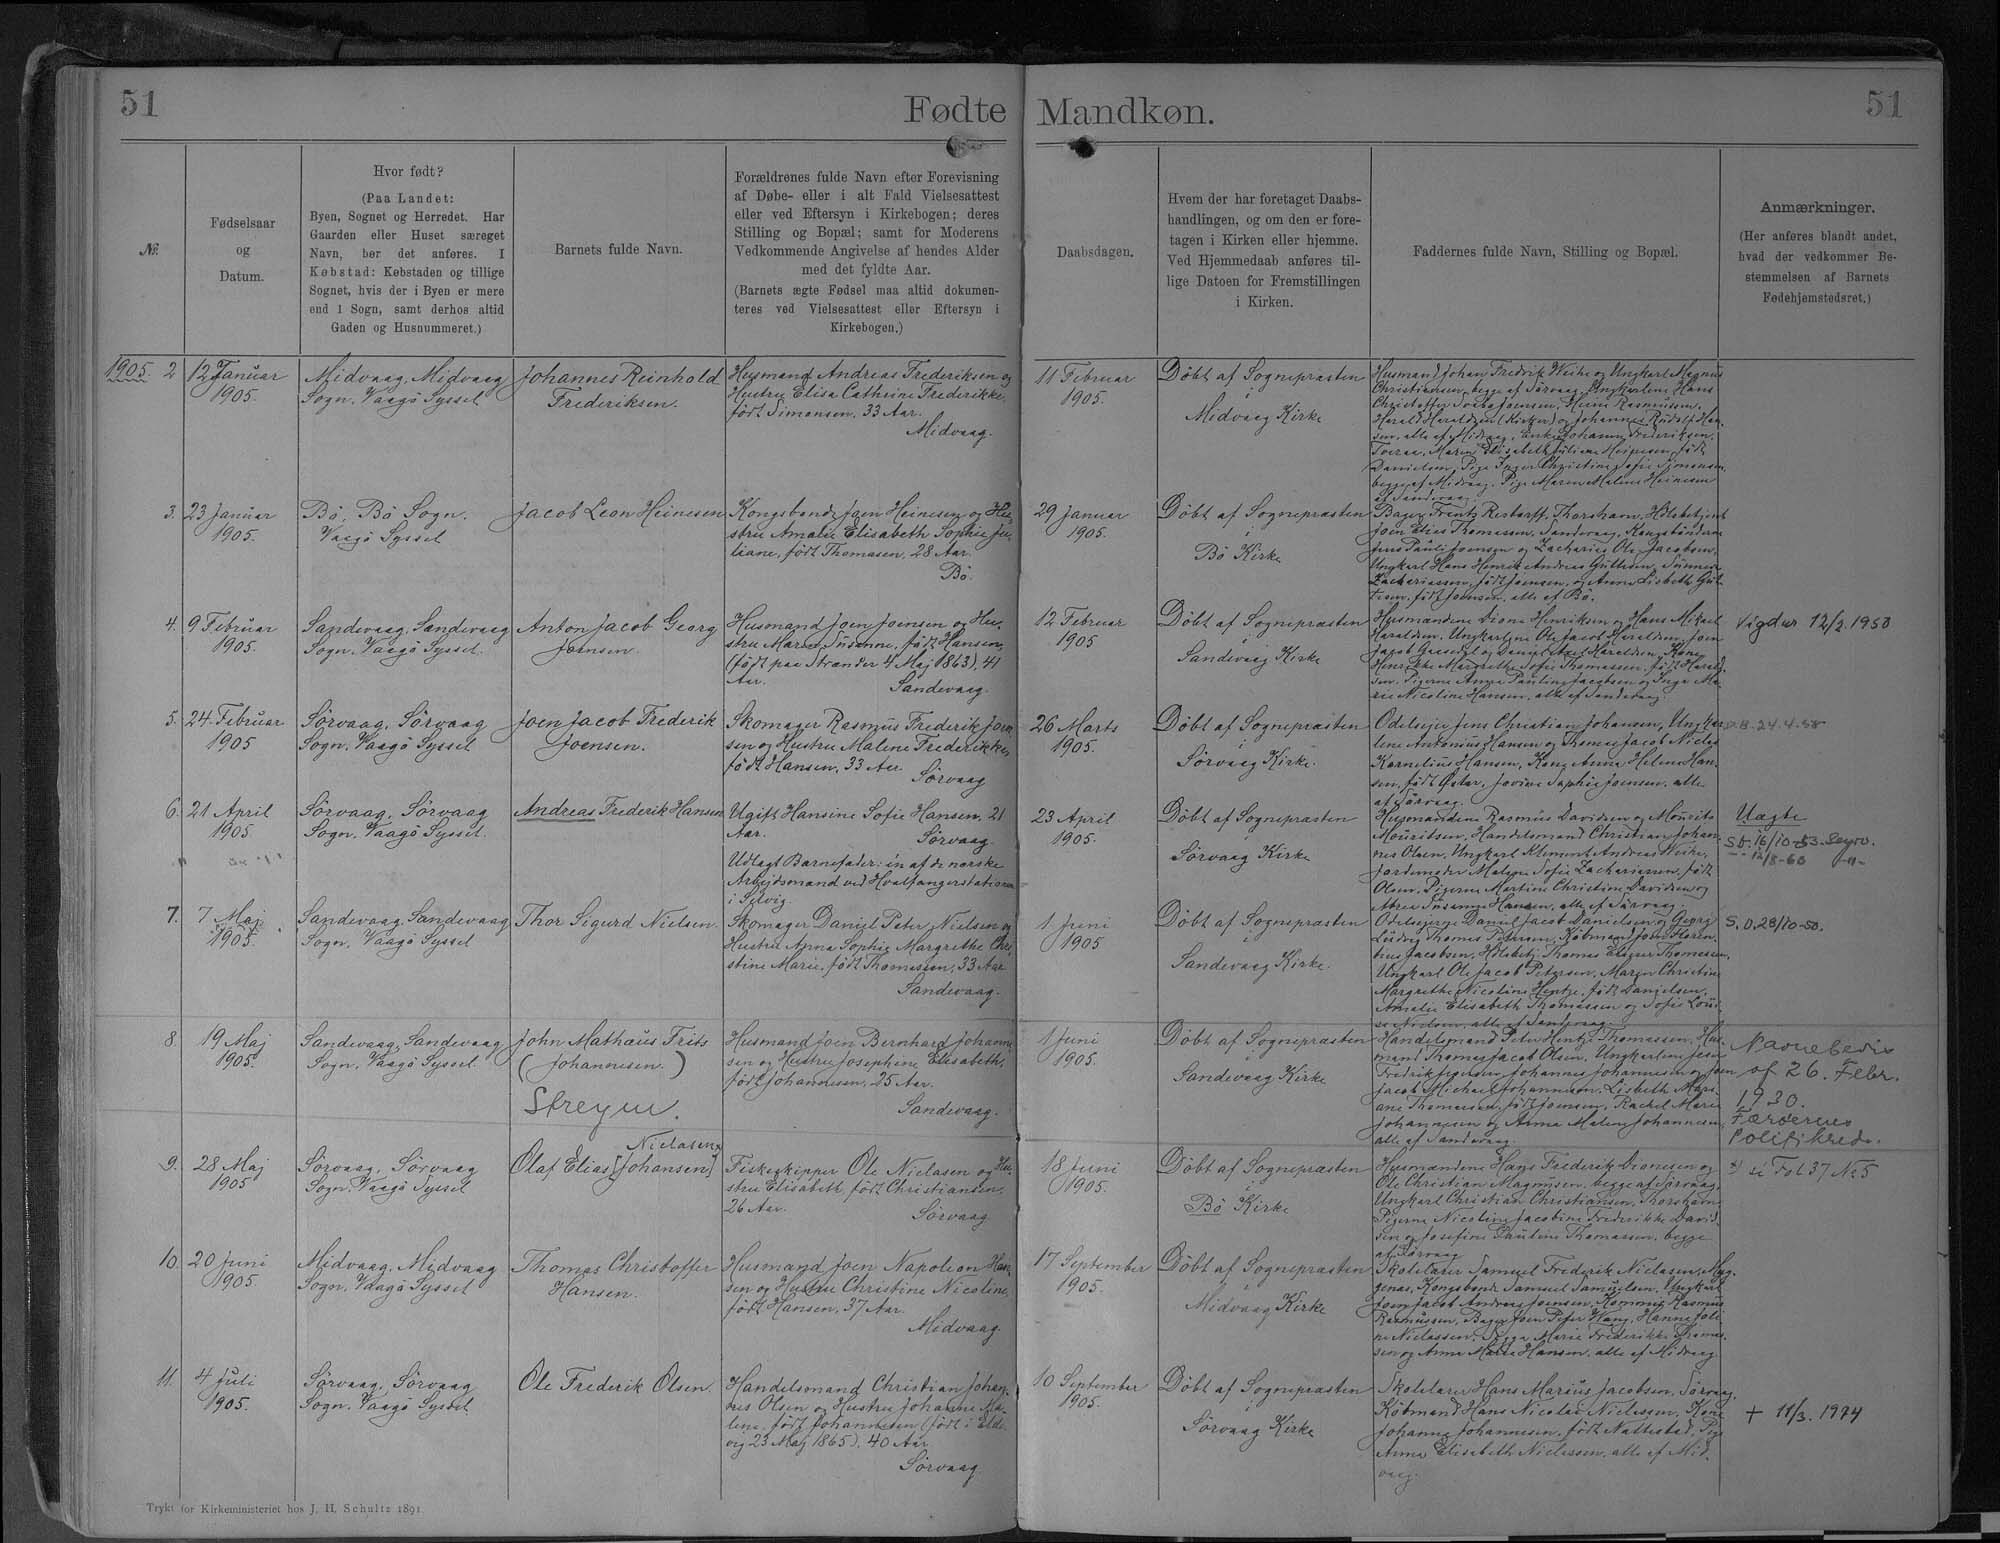 51
Fødte
Mandkøn.
51
№.
Fødselsaar
og
Datum.
Hvor født?
(Paa Landet:
Byen, Sognet og Herredet. Har
Gaarden eller Huset særeget
Navn, bør det anføres. I
Købstad: Købstaden og tillige
Sognet, hvis der i Byen er mere
end 1 Sogn, samt derhos altid
Gaden og Husnummeret.)
Barnets fulde Navn.
Forældrenes fulde Navn efter Forevisning
af Døbe- eller i alt Fald Vielsesattest
eller ved Eftersyn i Kirkebogen; deres
Stilling og Bopæl; samt for Moderens
Vedkommende Angivelse af hendes Alder
med det fyldte Aar.
(Barnets ægte Fødsel maa altid dokumen-
teres ved Vielsesattest eller Eftersyn i
Kirkebogen.)
Daabsdagen.
Hvem der har foretaget Daabs-
handlingen, og om den er fore-
tagen i Kirken eller hjemme.
Ved Hjemmedaab anføres til-
lige Datoen for Fremstillingen
i Kirken.
Faddernes fulde Navn, Stilling og Bopæl.
Anmærkninger.
(Her anføres blandt andet,
hvad der vedkommer Be-
stemmelsen af Barnets
Fødehjemstedsret.)
1905. 2
12 Januar
1905.
Midvaag, Midvaag
Sogn, Vaagö Syssel
Johannes Reinhold
Frederiksen.
Husmand Andreas Frederiksen og
Hustru Elisa Cathrine Frederikke,
født Simonsen, 33 Aar.
Midvaag.
11 Februar
1905.
Döbt af Sognepræsten
i
Midvaag Kirke
Husmand Johan Fredrik Weihe og Ungkarl Magnus
Christiansen, begge af Sörvaag, Ungkarlene Hans
Christoffer Joensen, Heini Rasmussen,
Harald Haraldsen (Kirker) og Johannes Rudolf Han-
sen, alle af Midvaag, Enke Johanne Frederiksen,
Maren Elisabeth Juliane Heinesen, født
Danielsen, Pige Inger Christine Sofie Simonsen,
begge af Midvaag, Pige Maren Malene Heinesen
af Sandevaag.
3.
23 Januar
1905.
Bö, Bö Sogn.
Vaagö Syssel
Jacob Leon Heinesen
Kongsbonde Joen Heinesen og Hu-
stru Amalie Elisabeth Sophie Ju-
liane, født Thomasen, 28 Aar.
Bö.
29 Januar
1905.
Döbt af Sognepræsten
i
Bö Kirke
Bager Frantz Restorff, Thorshavn,
Joen Elias Thomassen, Sandevaag, Kongsbönderne
Jens Pauli Joensen og Zacharias Ole Jacobsen,
Ungkarl Hans Henrik Andreas
Zachariassen, født Joensen, og Anna Lisbeth
født Joensen, alle af Bö.
4.
9 Februar
1905.
Sandevaag, Sandevaag
Sogn, Vaagö Syssel.
Anton Jacob Georg
Joensen.
Husmand Joen Joensen og Hu-
stru Maren Susanne, født Hansen,
(født paa Strender 4 Maj 1863), 41
Aar.
Sandevaag.
12 Februar
1905
Döbt af Sognepræsten
i
Sandevaag Kirke
Husmændene Dione Henriksen og Hans Mikael
Haraldsen, Ungkarlene Ole Jacob Haraldsen, Joen
Jacob og Daniel Haraldsen, Kone
Henrikke Margrethe Sofie Thomassen, født Harald-
sen, Pigerne Anna Pauline Jacobsen og Inga Ma-
rie Nicoline Hansen, alle af Sandevaag.
Vigdur 12/2. 1950
5.
24. Februar
1905
Sörvaag, Sörvaag
Sogn, Vaagö Syssel
Joen Jacob Frederik
Joensen.
Skomager Rasmus Frederik Joen-
sen og Hustru Malene Frederikke,
født Hansen, 33 Aar
Sörvaag
26 Marts
1905.
Döbt af Sognepræsten
i
Sörvaag Kirke.
Odelsejer Jens Christian Johansen, Ungkar-
lene Antonius Hansen og Thomas Jacob Niclas
Kornelius Hansen, Kone Anna Helene Han-
sen, født Jovine Sophie Joensen, alle
af Sörvaag.
24.4.58
6.
21 April
1905.
Sörvaag, Sörvaag
Sogn, Vaagö Syssel.
Andreas Frederik Hansen
Ugift Hansine Sofie Hansen, 21
Aar.
Sörvaag.
Udlagt Barnefader: en af de norske
Arbejdsmænd ved Hvalfangerstationen
i Gelvig.
23 April
1905.
Döbt af Sognepræsten
i
Sörvaag Kirke
Husmændene Rasmus Davidsen og Mourits
Mouritsen, Handelsmand Christian Johan-
nes Olsen, Ungkarl Klement Andreas Weihe,
Jordemoder Malene Sofie Zachariassen, født
Olsen, Pigerne Martine Christine Davidsen og
Susanne Hansen, alle af Sörvaag.
Uægte
S.D. 16/10-53.
12/8-60 -"-
7.
7 Maj
1905.
Sandevaag, Sandevaag
Sogn, Vaagö Syssel
Thor Sigurd Nielsen.
Skomager Daniel Peter Nielsen og
Hustru Anna Sophie Margrethe Chri-
stine Marie, født Thomassen, 33 Aar
Sandevaag.
1 Juni
1905
Döbt af Sognepræsten
i
Sandevaag Kirke.
Odelsejerne Daniel Jacob Danielsen og Georg
Ludvig Thomas Petersen, Købmand Joen
Jacobsen, Thomas Elieser Thomassen,
Ungkarl Ole Jacob Petersen, Maren Christine
Margrethe Nicoline Hentze, født Danielsen,
Amalie Elisabeth Thomassen og Sofie Loui-
se Nielsen, alle af Sandevaag.
S.D. 28/10-50.
8.
19 Maj
1905.
Sandevaag, Sandevaag
Sogn, Vaagö Syssel.
John Mathæus Frits
(Johannesen.)
Streymur.
Husmand Joen Bernhard Johanne-
sen og Hustru Josephine Elisabeth,
født Johannesen, 25 Aar.
Sandevaag.
1 Juni
1905.
Döbt af Sognepræsten
i
Sandevaag Kirke
Handelsmand Peter Hentze Thomassen, Hus-
mand Thomas Jacob Olsen, Ungkarlene Jens
Fredrik Johannes Johannesen og Joen
Jacob Michael Johannesen, Lisbeth Mari-
ane Thomassen, født Joensen, Rachel Marie
Johannesen og Anna Malene Johannesen,
alle af Sandevaag.
Navnebevis
af 26. Febr.
1930.
Færøernes
Politikreds.
9.
28 Maj
1905
Sörvaag, Sörvaag
Sogn, Vaagö Syssel
Nielasen
Olaf Elias [Johansen]
Fiskeskipper Ole Nielasen og Hu-
stru Elisabeth, født Christiansen,
26 Aar.
Sörvaag
18 Juni
1905.
Döbt af Sognepræsten
i
Bö Kirke
Husmændene Hans Frederik Dionesen og
Ole Christian Magnusen, begge af Sörvaag,
Ungkarl Christian Christiansen, Thorshavn,
Pigerne Nicoline Jacobine Frederikke David-
sen og Josefine Pauline Thomassen, begge
af Sörvaag
se Fol 37 № 5
10.
20 Juni
1905.
Midvaag, Midvaag
Sogn, Vaagö Syssel
Thomas Christoffer
Hansen.
Husmand Joen Napoleon Han-
sen og Hustru Christine Nicoline,
født Hansen, 37 Aar.
Midvaag
17 September
1905.
Döbt af Sognepræsten
i
Midvaag Kirke
Skolelærer Samuel Frederik Nielasen, Myg-
genæs, Kongsbonde Samuel Samuelsen, Ungkarl
Joen Jacob Andreas Joensen, Rasmus
Rasmussen, Bager Joen Peter Hanne Joli-
ne Nielassen, Marie Frederikke Thomas-
sen og Anna Marie Hansen, alle af Midvaag
11.
4 Juli
1905.
Sörvaag, Sörvaag
Sogn, Vaagö Syssel.
Ole Frederik Olsen.
Handelsmand Christian Johan-
nes Olsen og Hustru Johanne Ma-
lene, født Johannesen (født i Elde-
vig 23 Maj 1865), 40 Aar
Sörvaag
10 September
1905.
Döbt af Sognepræsten
i
Sörvaag Kirke
Skolelærer Hans Marius Jacobsen, Sörvaag,
Köbmand Hans Nicolai Nielassen, Kone
Johanne Johannesen, født Nattestad, Pige
Anna Elisabeth Nielassen, alle af Mid-
vaag.
+ 11/3. 1974
Trykt for Kirkeministeriet hos J. H. Schultz 1891